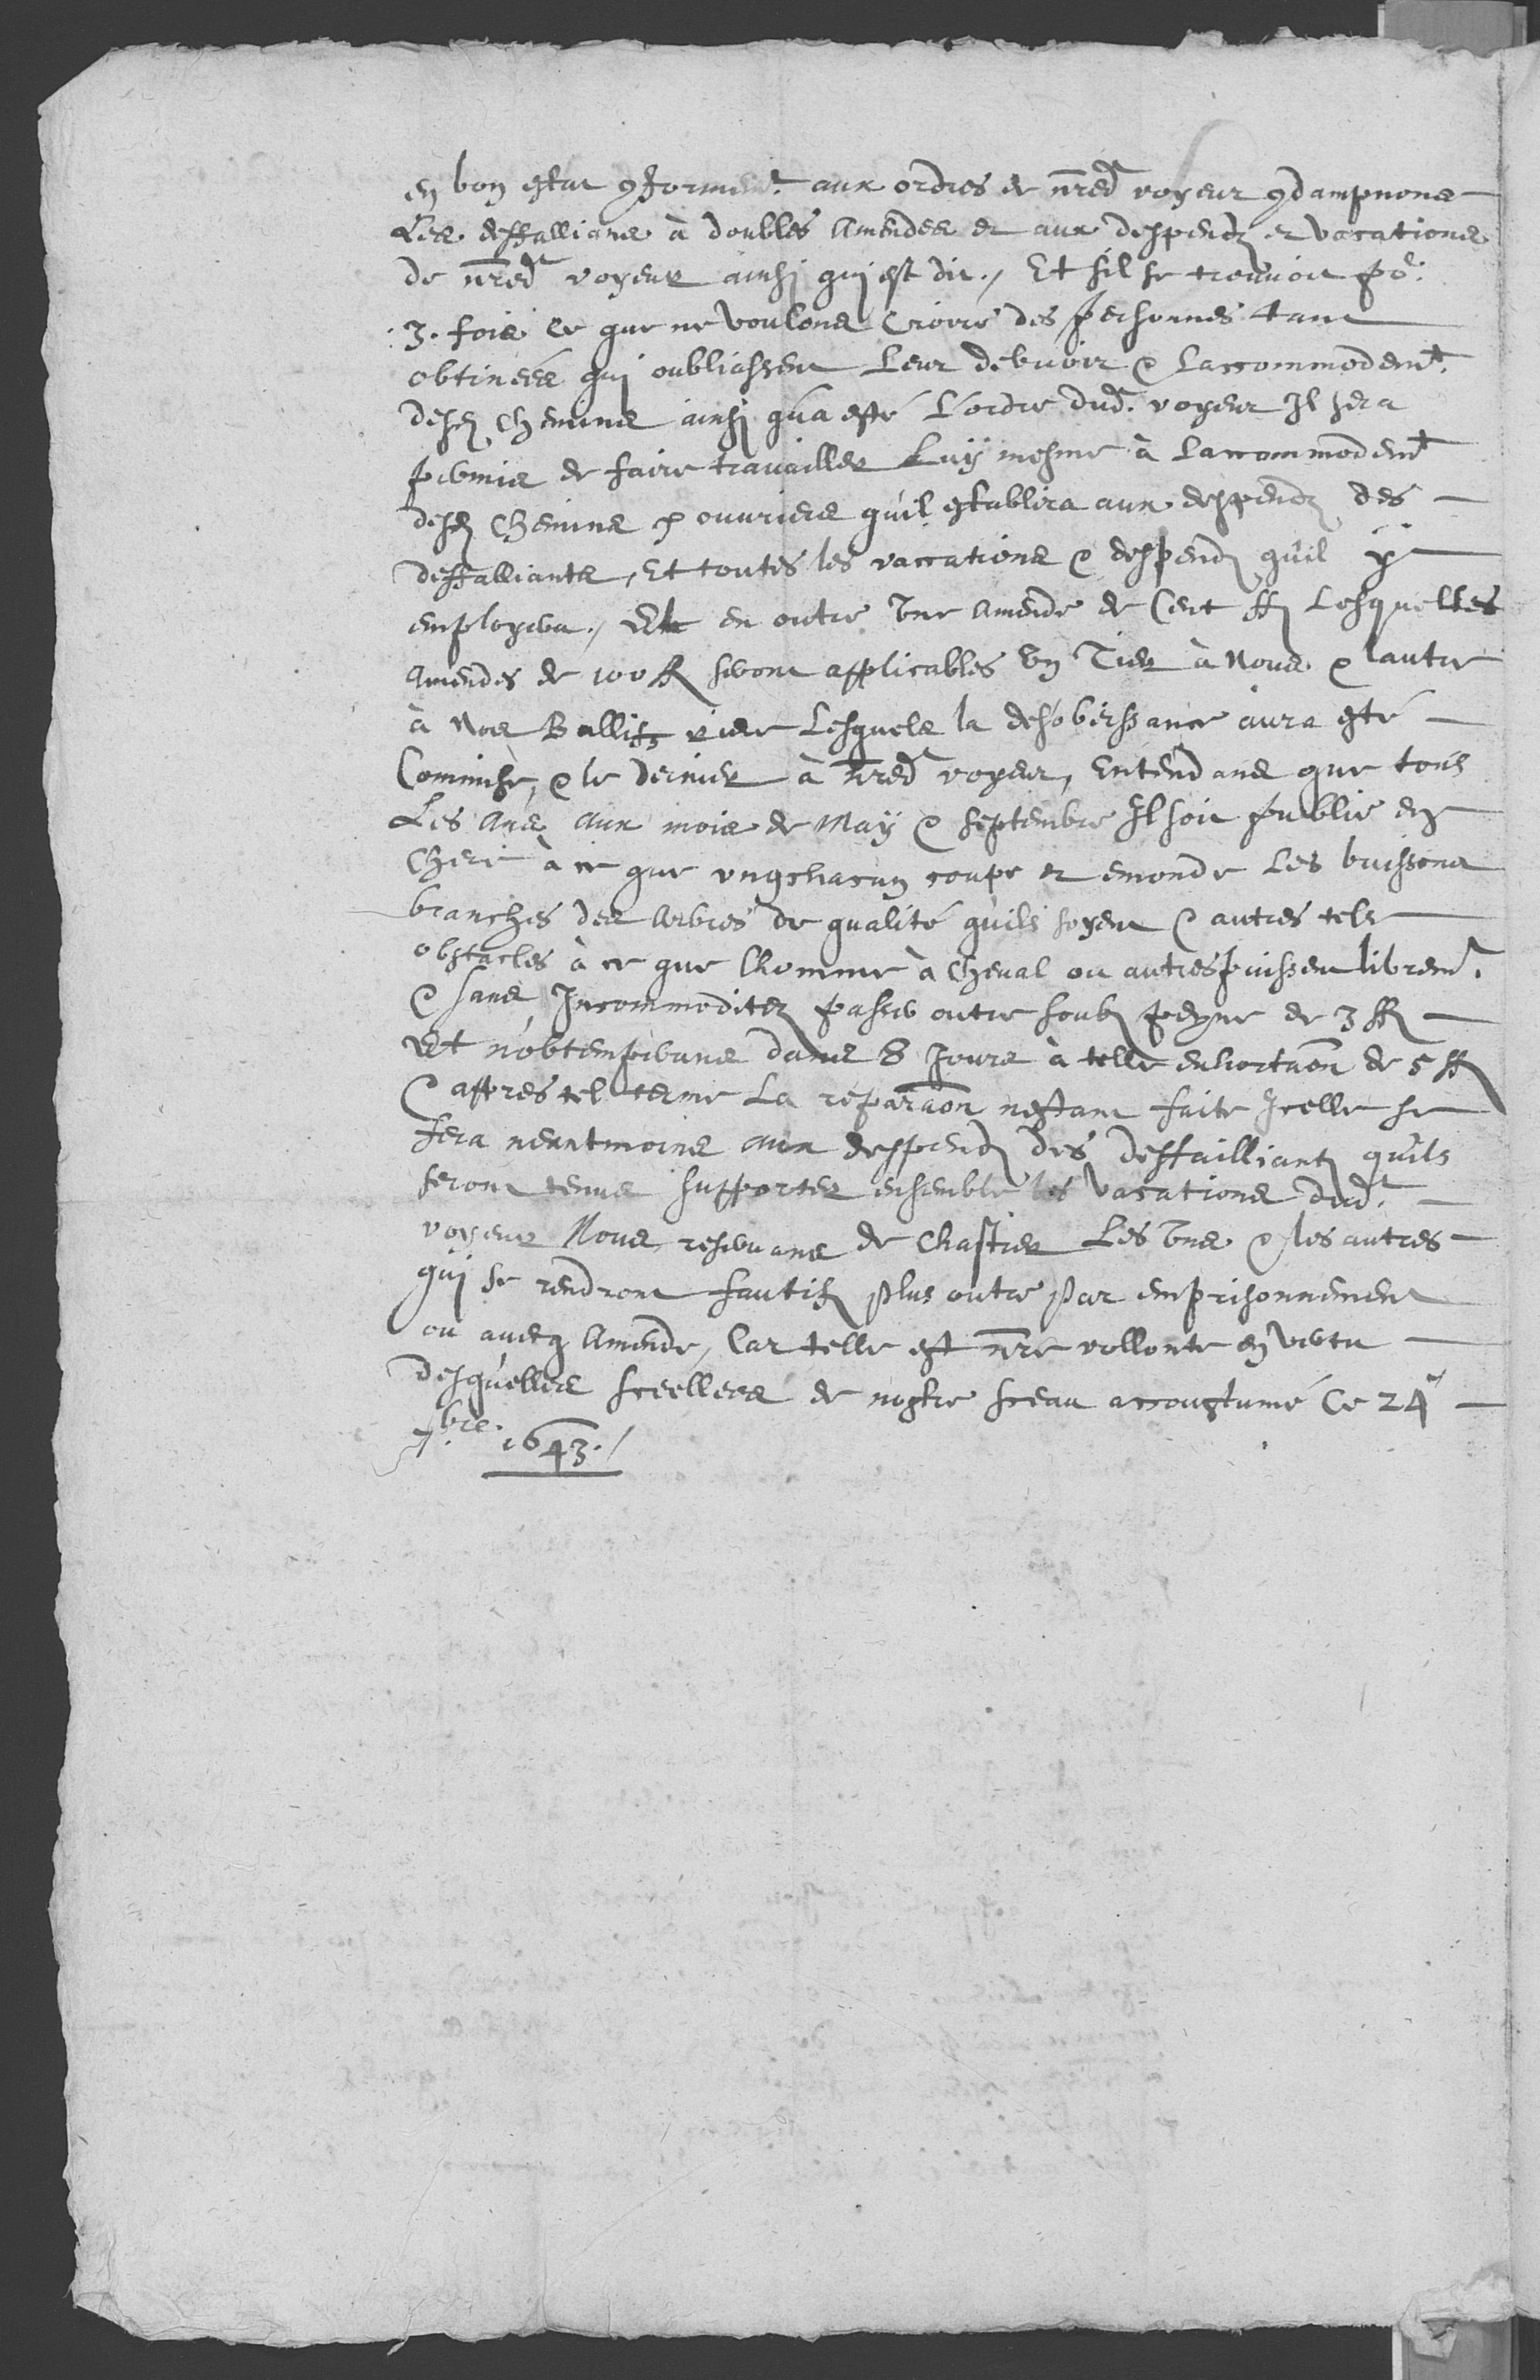 en bon estat 9formemt. aux ordres de nrēdt voyeur 9dampnons
Les deffallians à doubles Amendes et aux despendz et vacations
de nrēdt voyeur ainsj quj est dit./ Et sil se trouvoit po.r
3. fois ce que ne voulons Croire des personnes tant
obtinéés quj oubliassent Leur debuoir & Laccommodemt.
desd. Chemins ainsj qúa esté L'ordre dud. voyeur Jl sera
permis de faire travailler Luÿ mesme à Laccommodemt
desd. Chemins p ouvriers qu'il establira aux despendz des
deffalliants, Et toutes les vaccations & despendz qu'il ÿ
employera./ Et en outre Vne Amende de Cent ff Lesquelles
Amendes de 100 ff seront applicables Vn Tier à Nous & lautre
à Nos Ballifs riere Lesquels la desobeissance aura esté
Commise, & le dernier à nrēdt voyeur, Entendans que tous
Les Ans aux mois de Maÿ & Septembre Jl soit publié en
Chere à ce que vngchacun coupe et emonde Les buissons
branches des Arbres de qualité qu'ils soyent & autres tels
obstacles à ce que lhomme à Cheval ou autres puissent libremt.
& sans Jncommoditez passer outre soubz peyne de 3 ff
Et n'obtemperans dans 8 Jours à telle enhortaōn de 5 ff
& appres tel terme La réparaōn nestant faite Jcelle se
fera neantmoins aux despendz des deffailliantz quils
seront tenus supporter ensemble les vacations dudt
voyeur Nous reservans de Chastier Les Vns & les autres
quj se rendront fautifz plus outre par emprisonnement
ou avecq Amende, Car telle est nr̄e vollonte en vertu
desquelles sceellees de nostre sceau accoustumé Ce 24e
7bre. 1643./